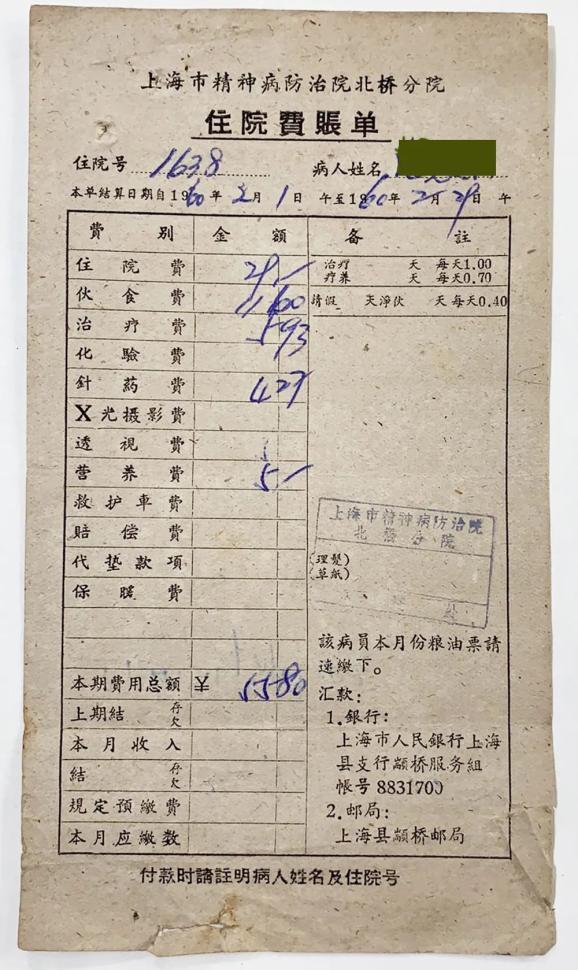 上海市精神病防治院北桥分院
住院費賬单
住院号 1638 病人姓名
本单結算日期自1960年2月1日 午至1960年2月29日 午
費別 金額 備註
住院費 29 — 治疗 天 每天1.00
疗养 天 每天0.70
伙食費 11 60 請假 天淨伙 天 每天0.40
治疗費 5 93
化驗費
針葯費 4 27
X光摄影費
透視費
营养費 5 —
救护車費
賠偿費
代垫款項 (理髮)
(草紙)
保暖費
上海市精神病防治院
北橋分院
該病員本月份粮油票請
速繳下。
本期費用总額 5580
上期結 存欠
本月收入
結 存欠
規定預繳費
本月应繳数
汇款：
1.銀行：
上海市人民銀行上海
县支行颛桥服务組
帳号 8831700
2.邮局：
上海县颛桥邮局
付款时請註明病人姓名及住院号